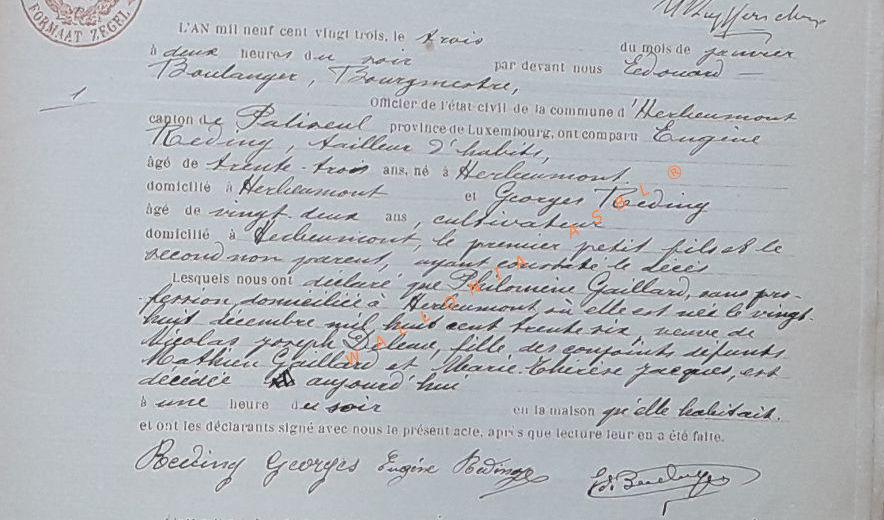 FORMAAT ZEGEL
L'AN mil neuf cent vingt trois, le trois du mois de janvier
à deux heures du soir par devant nous Edouard
Boulanger, Bourgmestre,
1
Officier de l'état civil de la commune d'Herbeumont
canton de Paliseul province de Luxembourg, ont comparu Eugène
Reding, tailleur d'habits,
âgé de trente-trois ans, né à Herbeumont
domicilié à Herbeumont et Georges Reding
âgé de vingt-deux ans, cultivateur
domicilié à Herbeumont, le premier petit fils et le
second non parent, ayant constaté le décès
Lesquels nous ont déclaré que Philomène Gaillard, sans pro-
fession, domiciliée à Herbeumont, où elle est née le vingt-
huit décembre mil huit cent trente six, veuve de
Nicolas Joseph Deleue, fille des conjoints défunts
Mathieu Gaillard et Marie Thérèse Jacques, est
décédée aujourd'hui
à une heure du soir en la maison qu'elle habitait.
et ont les déclarants signé avec nous le présent acte, après que lecture leur en a été faite.
Reding Georges Eugène Reding Ed. Boulanger
WALLONIA ASBL ®